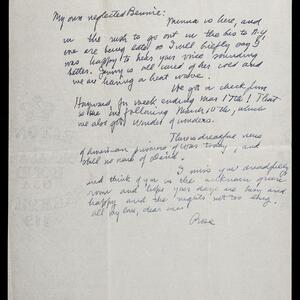 My own neglected Bennie: Minna is here, and
in the rush to go out in the bus to N.Y
we are being late so I will briefly say I
was happy to hear your voice sounding
better. Jenny is all cured of her cold and
we are having a heat wave.
We got a check from
Hayward for week ending Mar 17th! That
is the one following March 10th, which
we also got. Wonder of wonders.
There is dreadful news
of American prisoners of war today, and
still no news of
I miss you dreadfully
and think of you in the unknown green
room and hope your days are busy and
happy and the nights not too
all my love, dear one
Rose